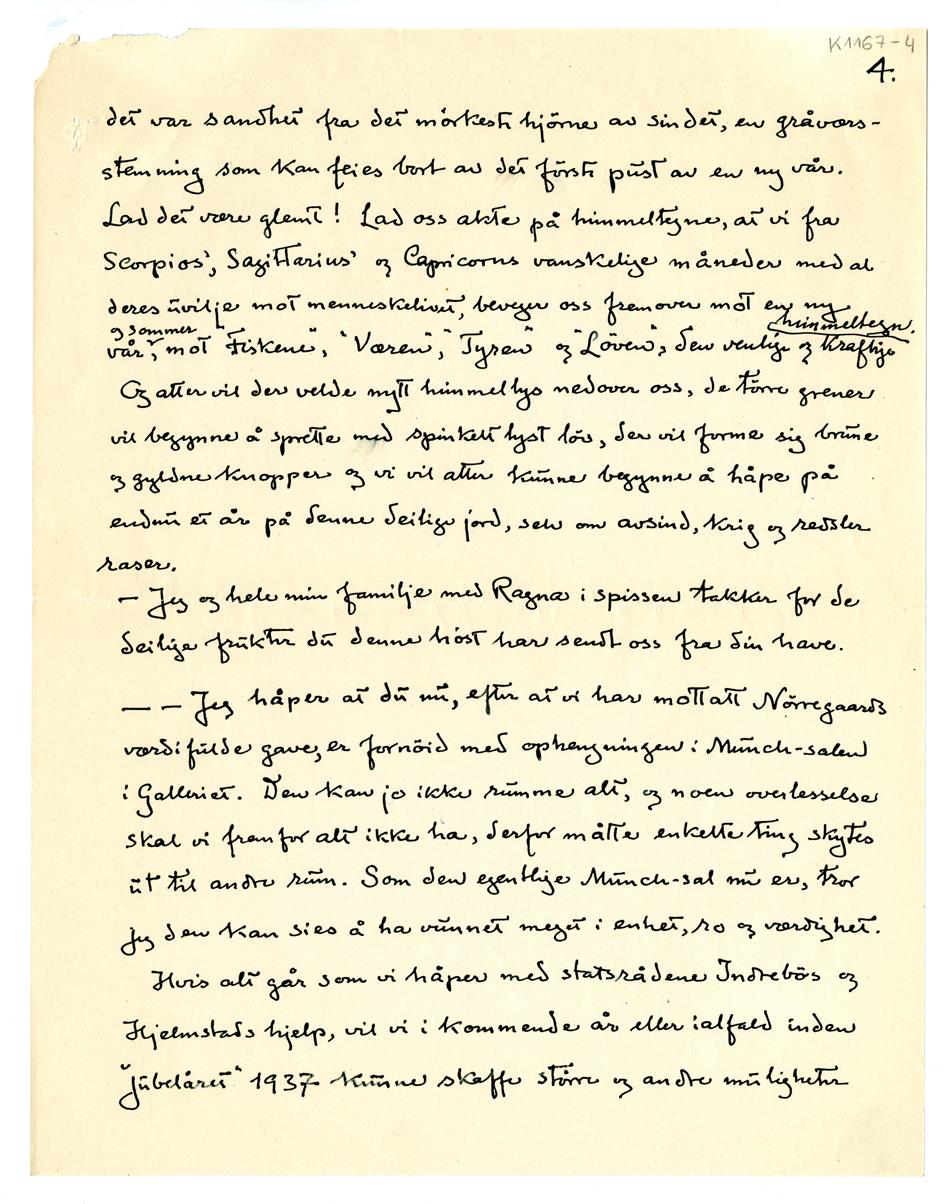 K1167-4
4.
det var sandhet fra det mörkeste hjörne av sindet, en gråværs-
stemning som kan feies bort av det förste pust av en ny vår.
Lad det være glemt! Lad oss akte på himmeltegne, at vi fra
Scorpios', Sagittarius' og Capricorns vanskelige måneder med al
deres uvilje mot menneskelivet, beveger oss fremover mot en ny
og sommer
vår, mot "Fiskene", "Væren", "Tyren" og "Löven", den venlige og kraftige
himmeltegn.
Og atter vil der velde nytt himmellys nedover oss, de törre grener
vil begynne å sprette med spinkelt lyst löv, der vil forme sig brune
og gyldne knopper og vi vil atter kunne begynne å håpe på
endnu et år på denne deilige jord, selv om avsind, krig og redsler
raser.
— Jeg og hele min familje med Ragna i spissen takker for de
deilige frukter du denne höst har sendt oss fra din have.
— — Jeg håper at du nu, efter at vi har mottatt Nörregaards
værdifulde gave, er fornöid med ophengningen i Munch-salen
i Galleriet. Den kan jo ikke rumme alt, og noen overlesselse
skal vi fremfor alt ikke ha, derfor måtte enkelte ting skytes
ut til andre rum. Som den egentlige Munch-sal nu er, tror
jeg den kan sies å ha vunnet meget i enhet, ro og værdighet.
Hvis alt går som vi håper med statsrådene Indrebös og
Hjelmstads hjelp, vil vi i kommende år eller ialfald inden
"Jubelåret" 1937 kunne skaffe större og andre muligheter